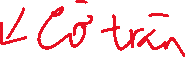 ↙ Cờ trân